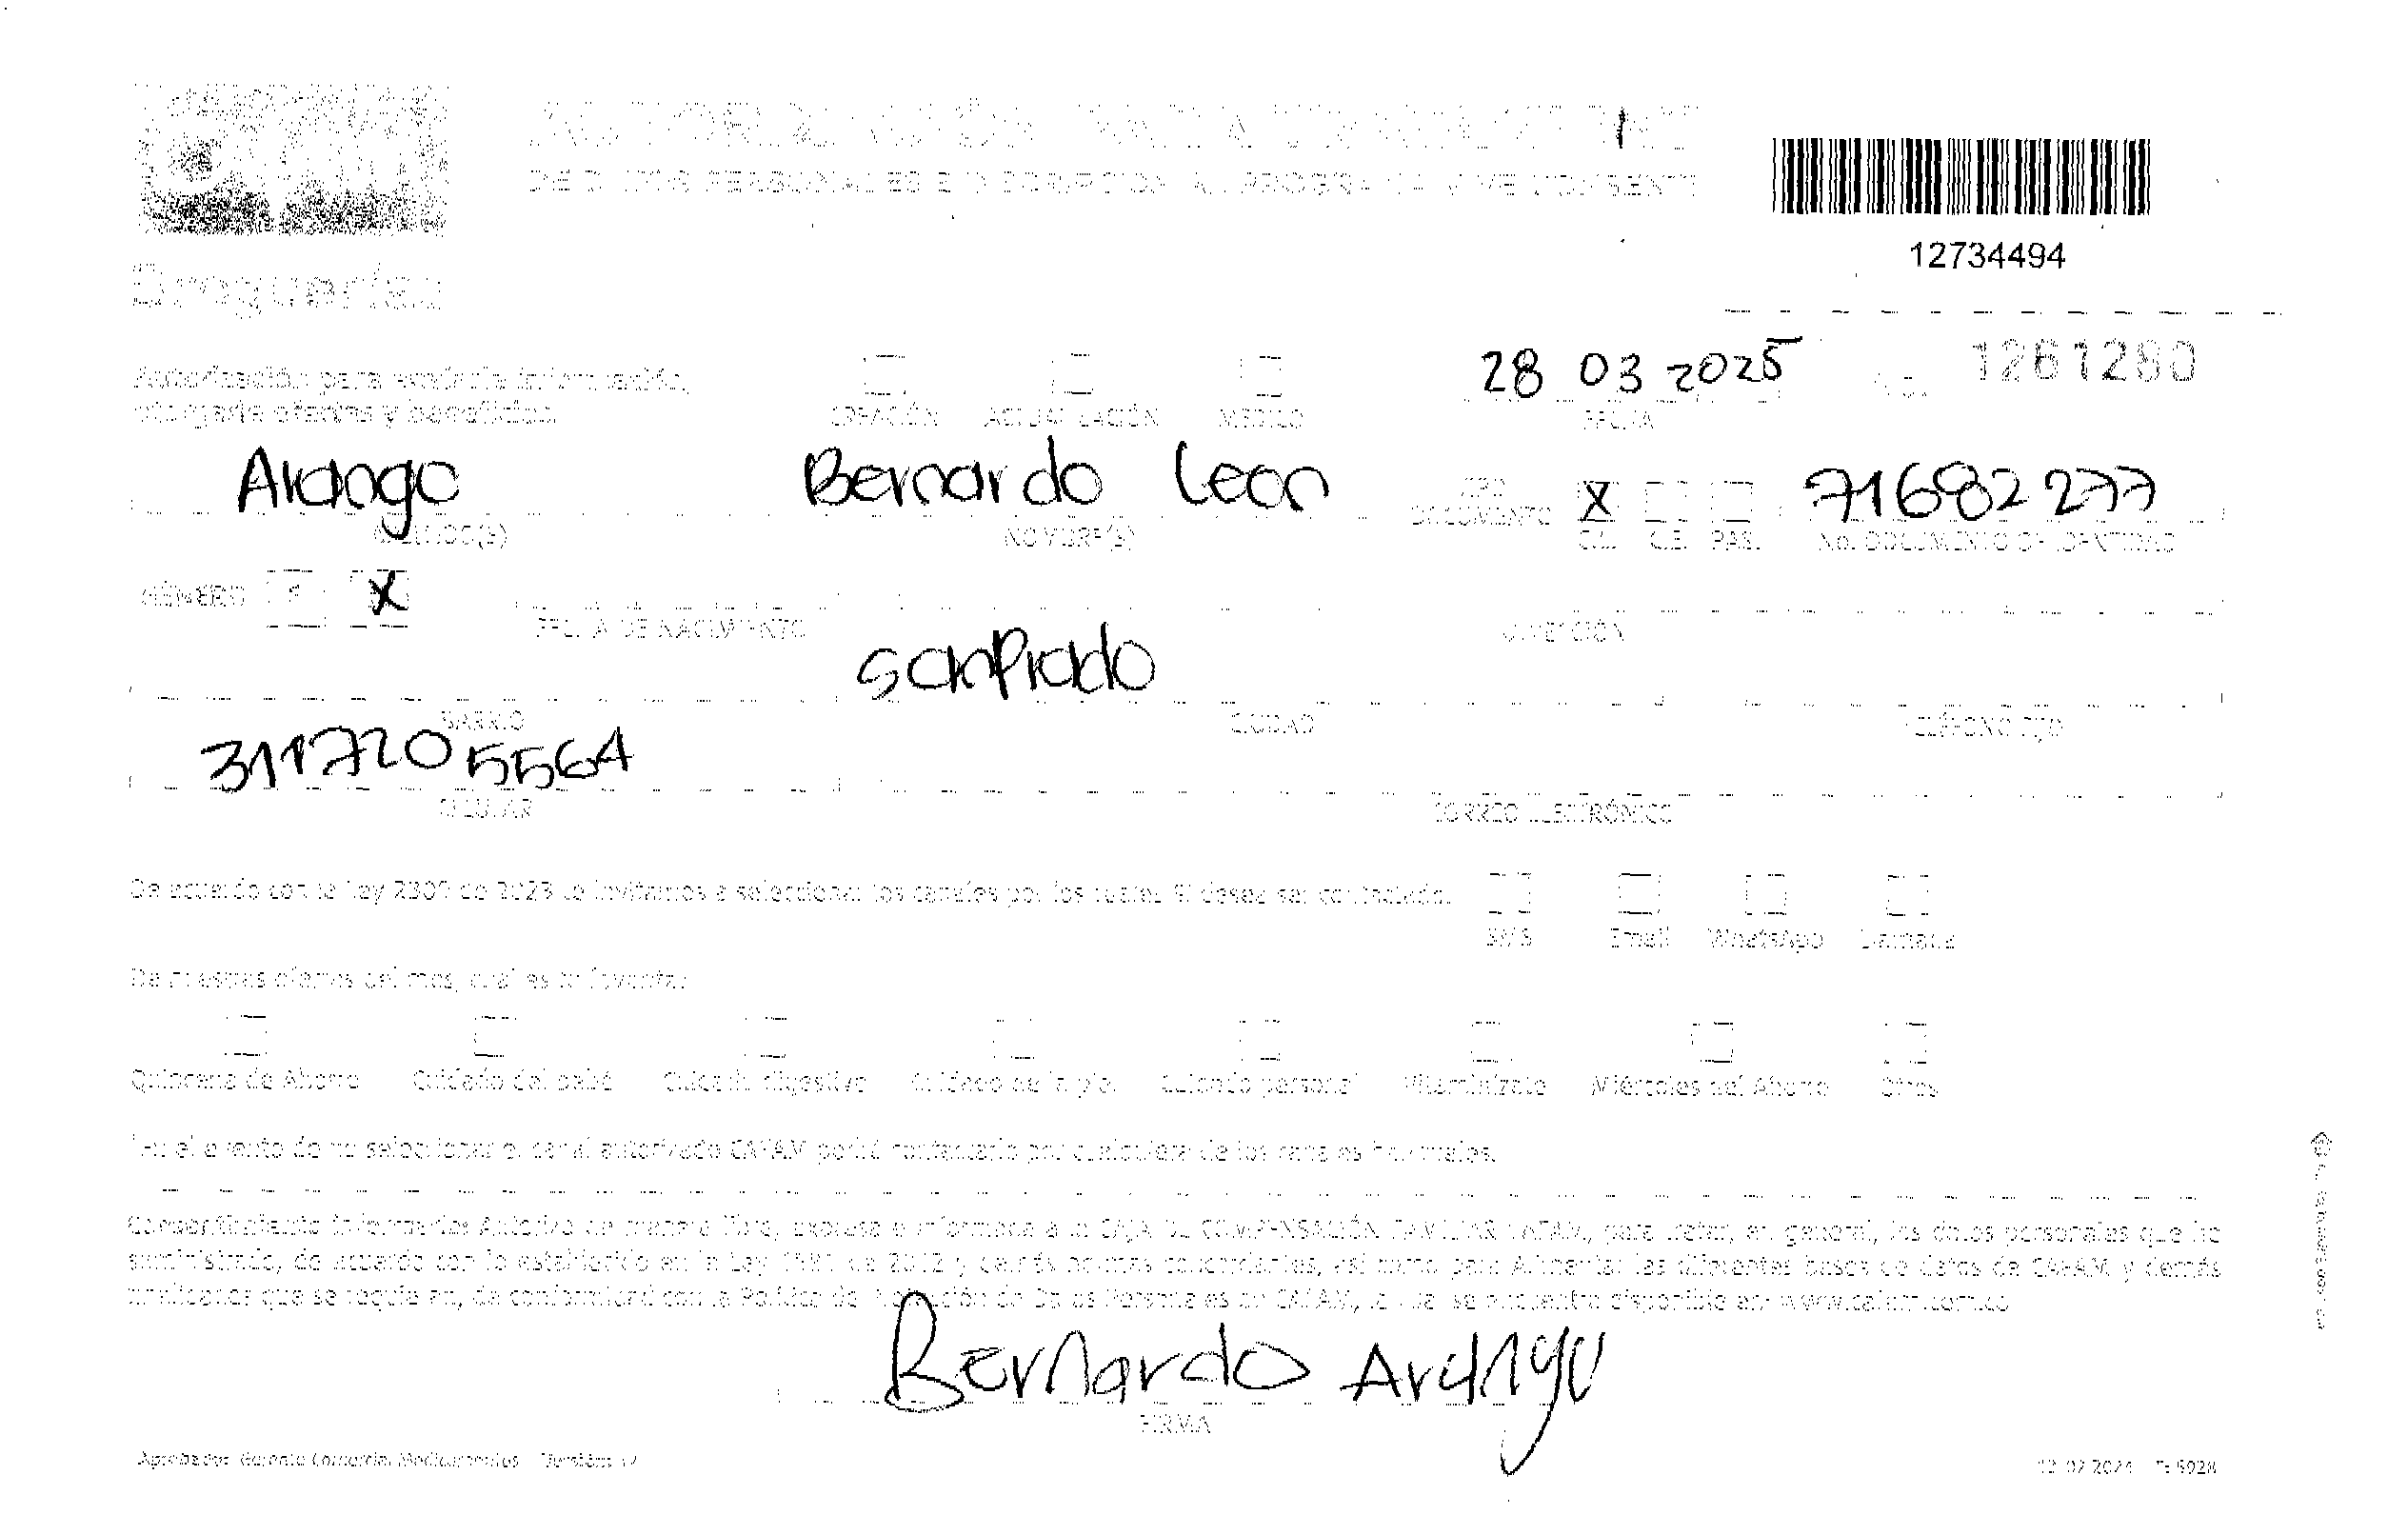 AUTORIZACIÓN PARA TRATAMIENTO
DE DATOS PERSONALES E INSCRIPCIÓN AL PROGRAMA VIVE CONSENTI
12734494
Droguerías
Autorización para enviarle información,
otorgarle ofertas y beneficios.
CREACIÓN ACTUALIZACIÓN MÉDICO
28 03 2025
FECHA
No. 1261280
Arango Bernardo Leon X 71682277
APELLIDO(S) NOMBRE(S) TIPO DOCUMENTO C.C. C.E. PAS. No. DOCUMENTO DE IDENTIDAD
GÉNERO F X
FECHA DE NACIMIENTO DIRECCIÓN
SanPrado
BARRIO CIUDAD TELÉFONO FIJO
3117205564
CELULAR CORREO ELECTRÓNICO
De acuerdo con la Ley 2300 de 2023 le invitamos a seleccionar los canales por los cuales SI desea ser contactado.
SMS Email WhatsApp Llamada
De nuestras ofertas del mes, cuál es tu favorita:
Quincena de Ahorro Cuidado del bebé Cuidado digestivo Cuidado de la piel Cuidado personal Vitaminízate Miércoles del Ahorro Otros
*En el evento de no seleccionar el canal autorizado CAFAM podrá contactarlo por cualquiera de los canales habituales.
Consentimiento Informado: Autorizo de manera libre, expresa e informada a la CAJA DE COMPENSACIÓN FAMILIAR CAFAM, para tratar, en general, los datos personales que he
suministrado, de acuerdo con lo establecido en la Ley 1581 de 2012 y demás normas concordantes, así como para alimentar las diferentes bases de datos de CAFAM y demás
que se requieran, de conformidad con la Política de Protección de Datos Personales de CAFAM, la cual se encuentra disponible en: www.cafam.com.co
Bernardo Arango
FIRMA
Aprobador: Gerente Comercial Medicamentos Versión: 12
12 02 2024 F: 5928